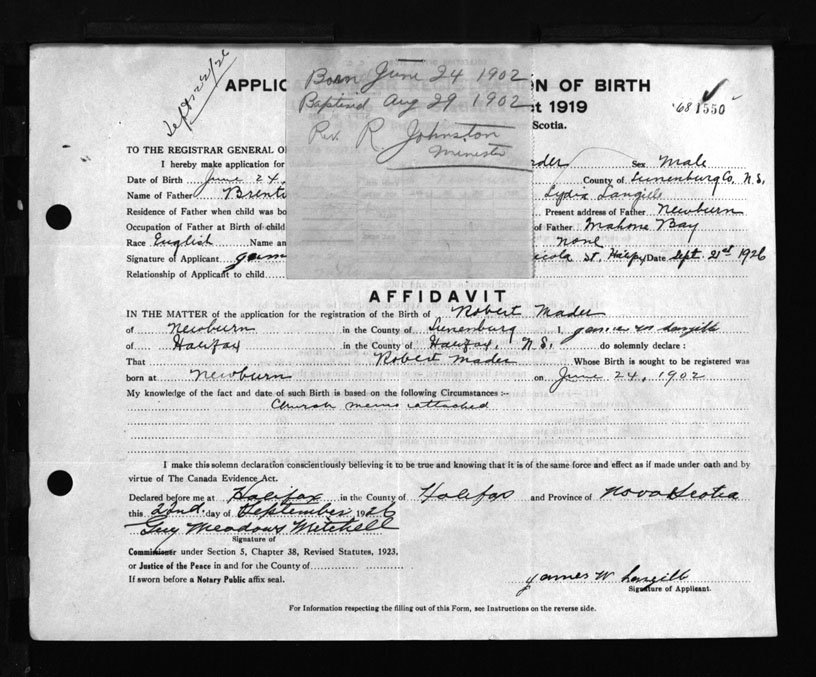 Sept 22/26
APPLIC
N OF BIRTH
ct 1919
Scotia.
'68 1550
Born June 24 1902
Baptised Aug 29 1902
Rev. R. Johnston
Minister
TO THE REGISTRAR GENERAL O
I hereby make application for ader Sex Male
Date of Birth June 24, County of Lunenburg Co, N.S.
Name of Father Brent Lydia Langille
Residence of Father when child was bo Present address of Father Newburn
Occupation of Father at Birth of child of Father Mahone Bay
Race English Name an none
Signature of Applicant Jam St, Date Sept. 21st 1926
Relationship of Applicant to child
AFFIDAVIT
IN THE MATTER of the application for the registration of the Birth of Robert Mader
of Newburn in the County of Lunenburg I, James W Langill
of Halifax in the County of Halifax, N.S. do solemnly declare :
That Robert Mader Whose Birth is sought to be registered was
born at Newburn on June 24, 1902
My knowledge of the fact and date of such Birth is based on the following Circumstances :-
Church memo attached
I make this solemn declaration conscientiously believing it to be true and knowing that it is of the same force and effect as if made under oath and by
virtue of The Canada Evidence Act.
Declared before me at Halifax in the County of Halifax and Province of Nova Scotia
this 22nd. day of September 1926
Guy Meadows Mitchell
Signature of
Commissioner under Section 5, Chapter 38, Revised Statutes, 1923.
or Justice of the Peace in and for the County of
If sworn before a Notary Public affix seal.
James W Langill
Signature of Applicant.
For Information respecting the filling out of this Form, see Instructions on the reverse side.